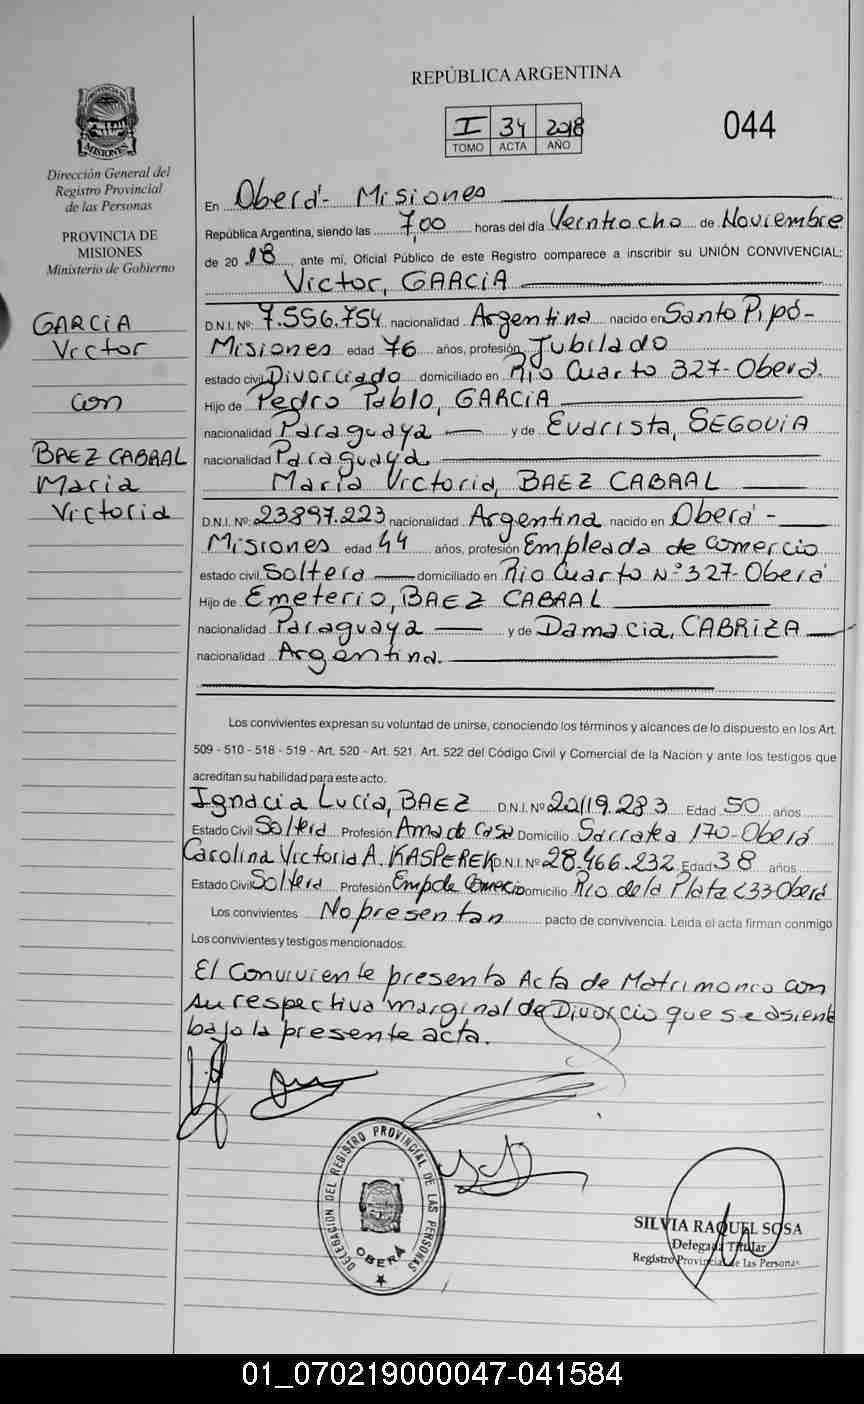 REPÚBLICA ARGENTINA
I 34 2018
TOMO ACTA AÑO
044
MISIONES
Dirección General del
Registro Provincial
de las Personas
PROVINCIA DE
MISIONES
Ministerio de Gobierno
GARCIA
Victor
con
BAEZ CABRAL
Maria
Victoria
En Oberá - Misiones
República Argentina, siendo las 7,00 horas del día Veintiocho de Noviembre
de 2018, ante mí, Oficial Público de este Registro comparece a inscribir su UNIÓN CONVIVENCIAL:
Victor, GARCIA
D.N.I. Nº: 7.556.754 nacionalidad Argentina nacido en Santo Pipó -
Misiones edad 76 años, profesión Jubilado
estado civil Divorciado domiciliado en Rio Cuarto 327- Oberá.
Hijo de Pedro Pablo, GARCIA
nacionalidad Paraguaya y de Evarista, SEGOVIA
nacionalidad Paraguaya
María Victoria, BAEZ CABRAL
D.N.I. Nº: 23897.223 nacionalidad Argentina nacido en Oberá -
Misiones edad 44 años, profesión Empleada de Comercio
estado civil Soltera domiciliado en Rio Cuarto Nº 327- Oberá
Hijo de Emeterio, BAEZ CABRAL
nacionalidad Paraguaya y de Damacia, CABRIZA
nacionalidad Argentina.
Los convivientes expresan su voluntad de unirse, conociendo los términos y alcances de lo dispuesto en los Art.
509 - 510 - 518 - 519 - Art. 520 - Art. 521. Art. 522 del Código Civil y Comercial de la Nación y ante los testigos que
acreditan su habilidad para este acto.
Ignacia Lucia, BAEZ D.N.I. Nº 20.119.283 Edad 50 años
Estado Civil Soltera Profesión Ama de Casa Domicilio Sarratea 170- Oberá
Carolina Victoria A. KASPEREK D.N.I. Nº 28.466.232 Edad 38 años
Estado Civil Soltera Profesión Emp. de Comercio Domicilio Rio de la Plata 233 Oberá
Los convivientes No presentan pacto de convivencia. Leída el acta firman conmigo
Los convivientes y testigos mencionados.
El Conviviente presenta Acta de Matrimonio con
su respectiva marginal de Divorcio que se asienta
bajo la presente acta.
DELEGACION DEL REGISTRO PROVINCIAL DE LAS PERSONAS
OBERÁ
SILVIA RAQUEL SOSA
Delegada Titular
Registro Provincial de las Personas
01_070219000047-041584